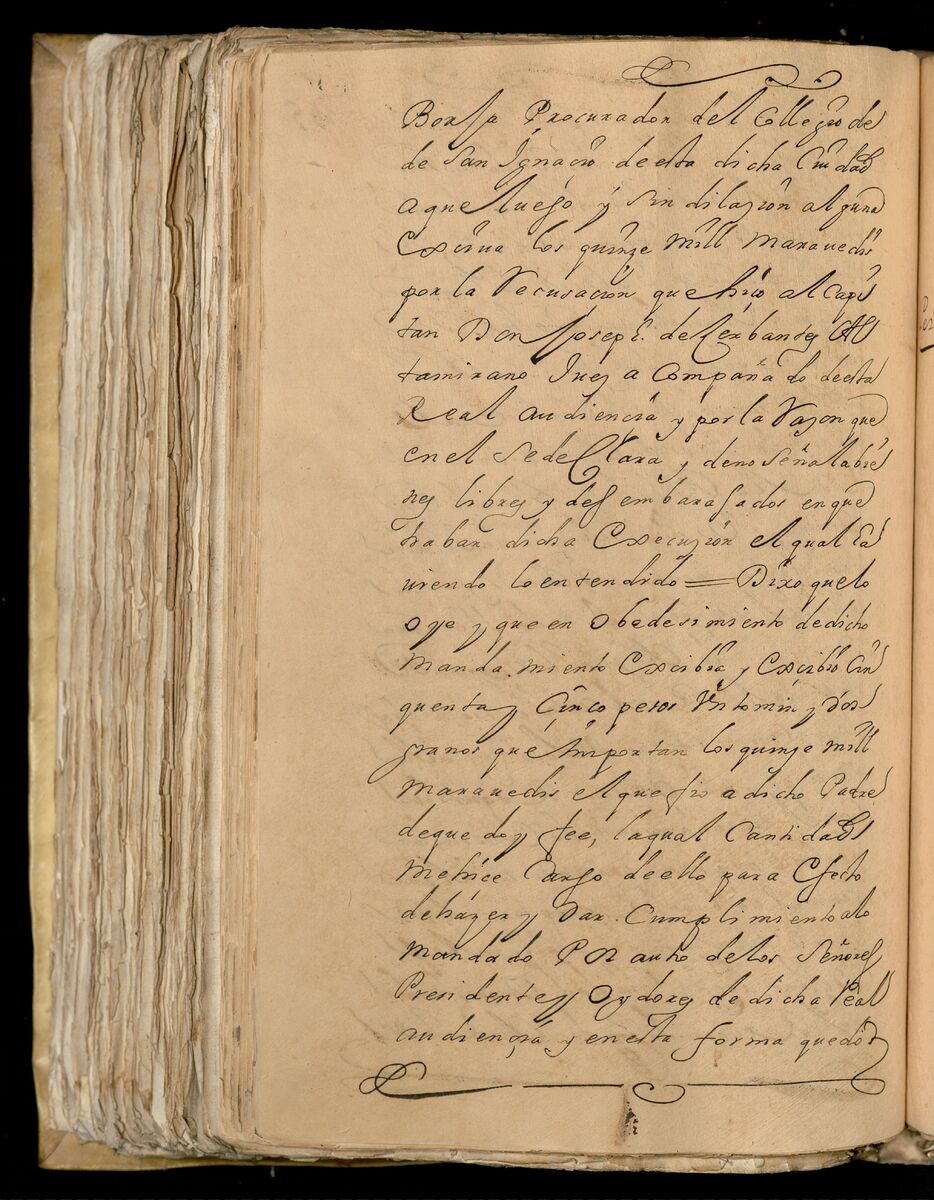 Borja Procurador del Collegio de
de San Ignacio deesta dicha Ciudad
aque luego y sin dilazion alguna
Exsiua los quinze mill marauedis
por la Recusacion que hizo al Capi
tan Don Joseph de Cerbantes Al
tamirano Juez acompañado deesta
Real audiencia y por la Razon que
en el se de Clara y deno Señalar bie
nes libres y desembarasados en que
trabar dicha Execuzion el qual ha
uiendo lo entendido = Dixo que lo
oye y que en obedesimiento de dicho
manda miento Excibia y Excibio Cin
quenta y Cinco pesos Vn tomin y dos
granos que Importan los quinze mill
marauedis el que fio a dicho Padre
deque doy fee, la qual Cantidad
me hice Cargo de ello para Efecto
de házer y Dar Cumplimiento alo
mandado Por auto delos Señores
Presidente y Oydores de dicha Real
audiencia y en esta forma quedó